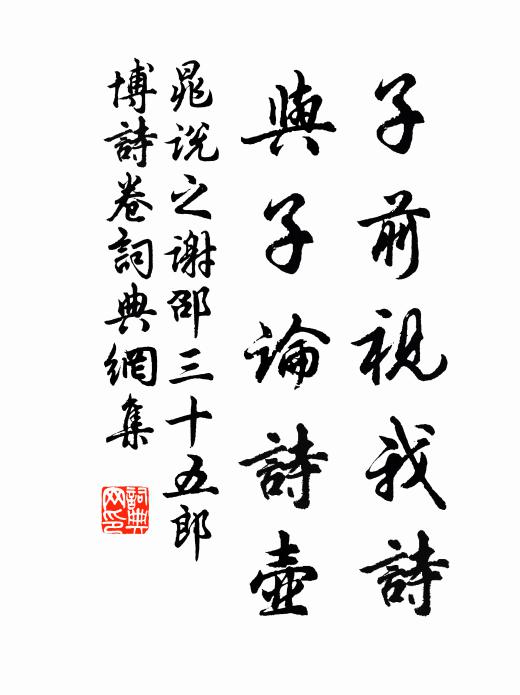 子前視我詩
與子論詩壺
晁說之謝邵三十五郎
博詩卷詞典網集
詞典
网印